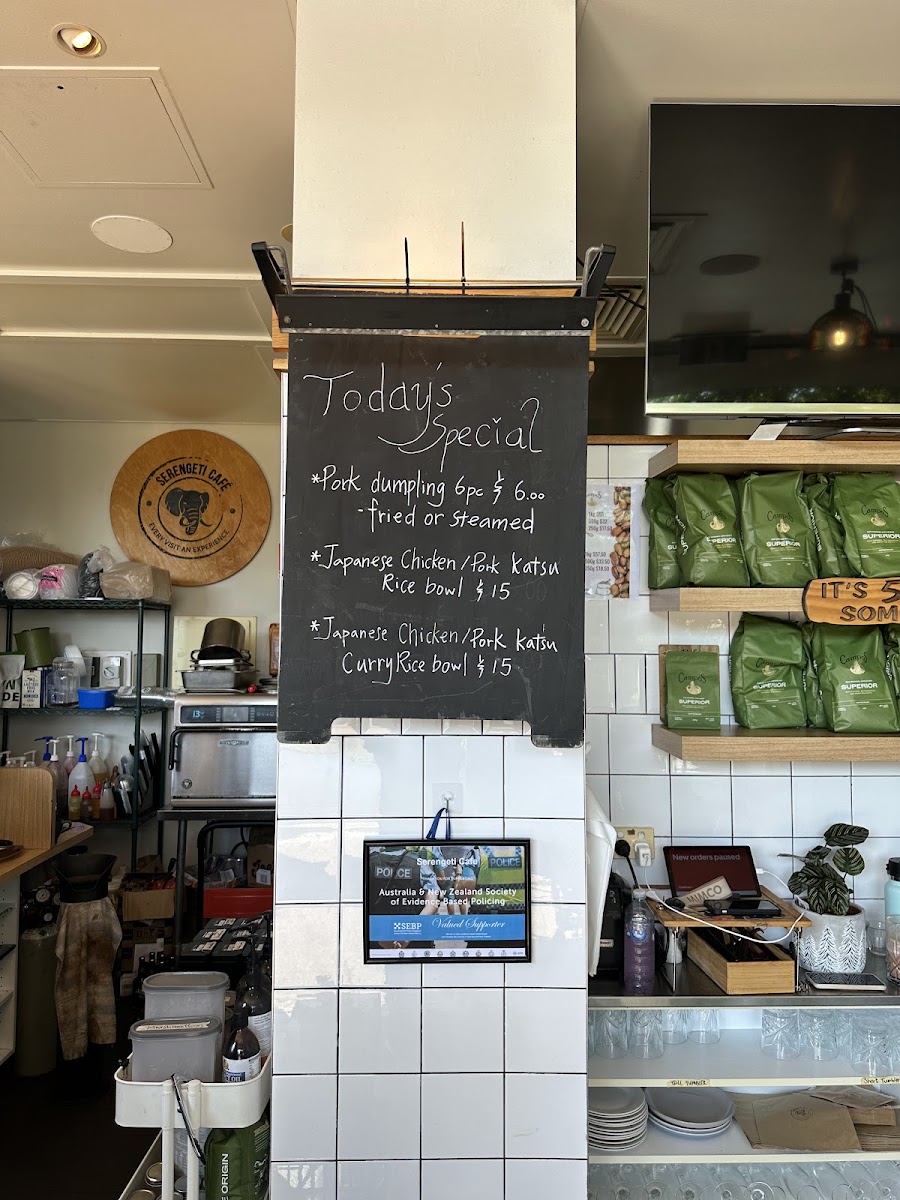 Today's
Special
*Pork dumpling 6pc $ 6.00
-fried or steamed
*Japanese Chicken/Pork Katsu
Rice bowl $15
*Japanese Chicken/Pork Katsu
Curry Rice bowl $15
SERENGETI CAFÉ
EVERY VISIT AN EXPERIENCE
SUPERIOR
SUPERIOR
SUPERIOR
IT'S 5
SOM
SUPERIOR
SUPERIOR
SUPERIOR
Serengeti Café
POLICE
POLICE
Australia & New Zealand Society
of Evidence Based Policing
SEBP
Valued Supporter
New orders paused
TALL TUMBLER
Short Tumble
ORIGIN